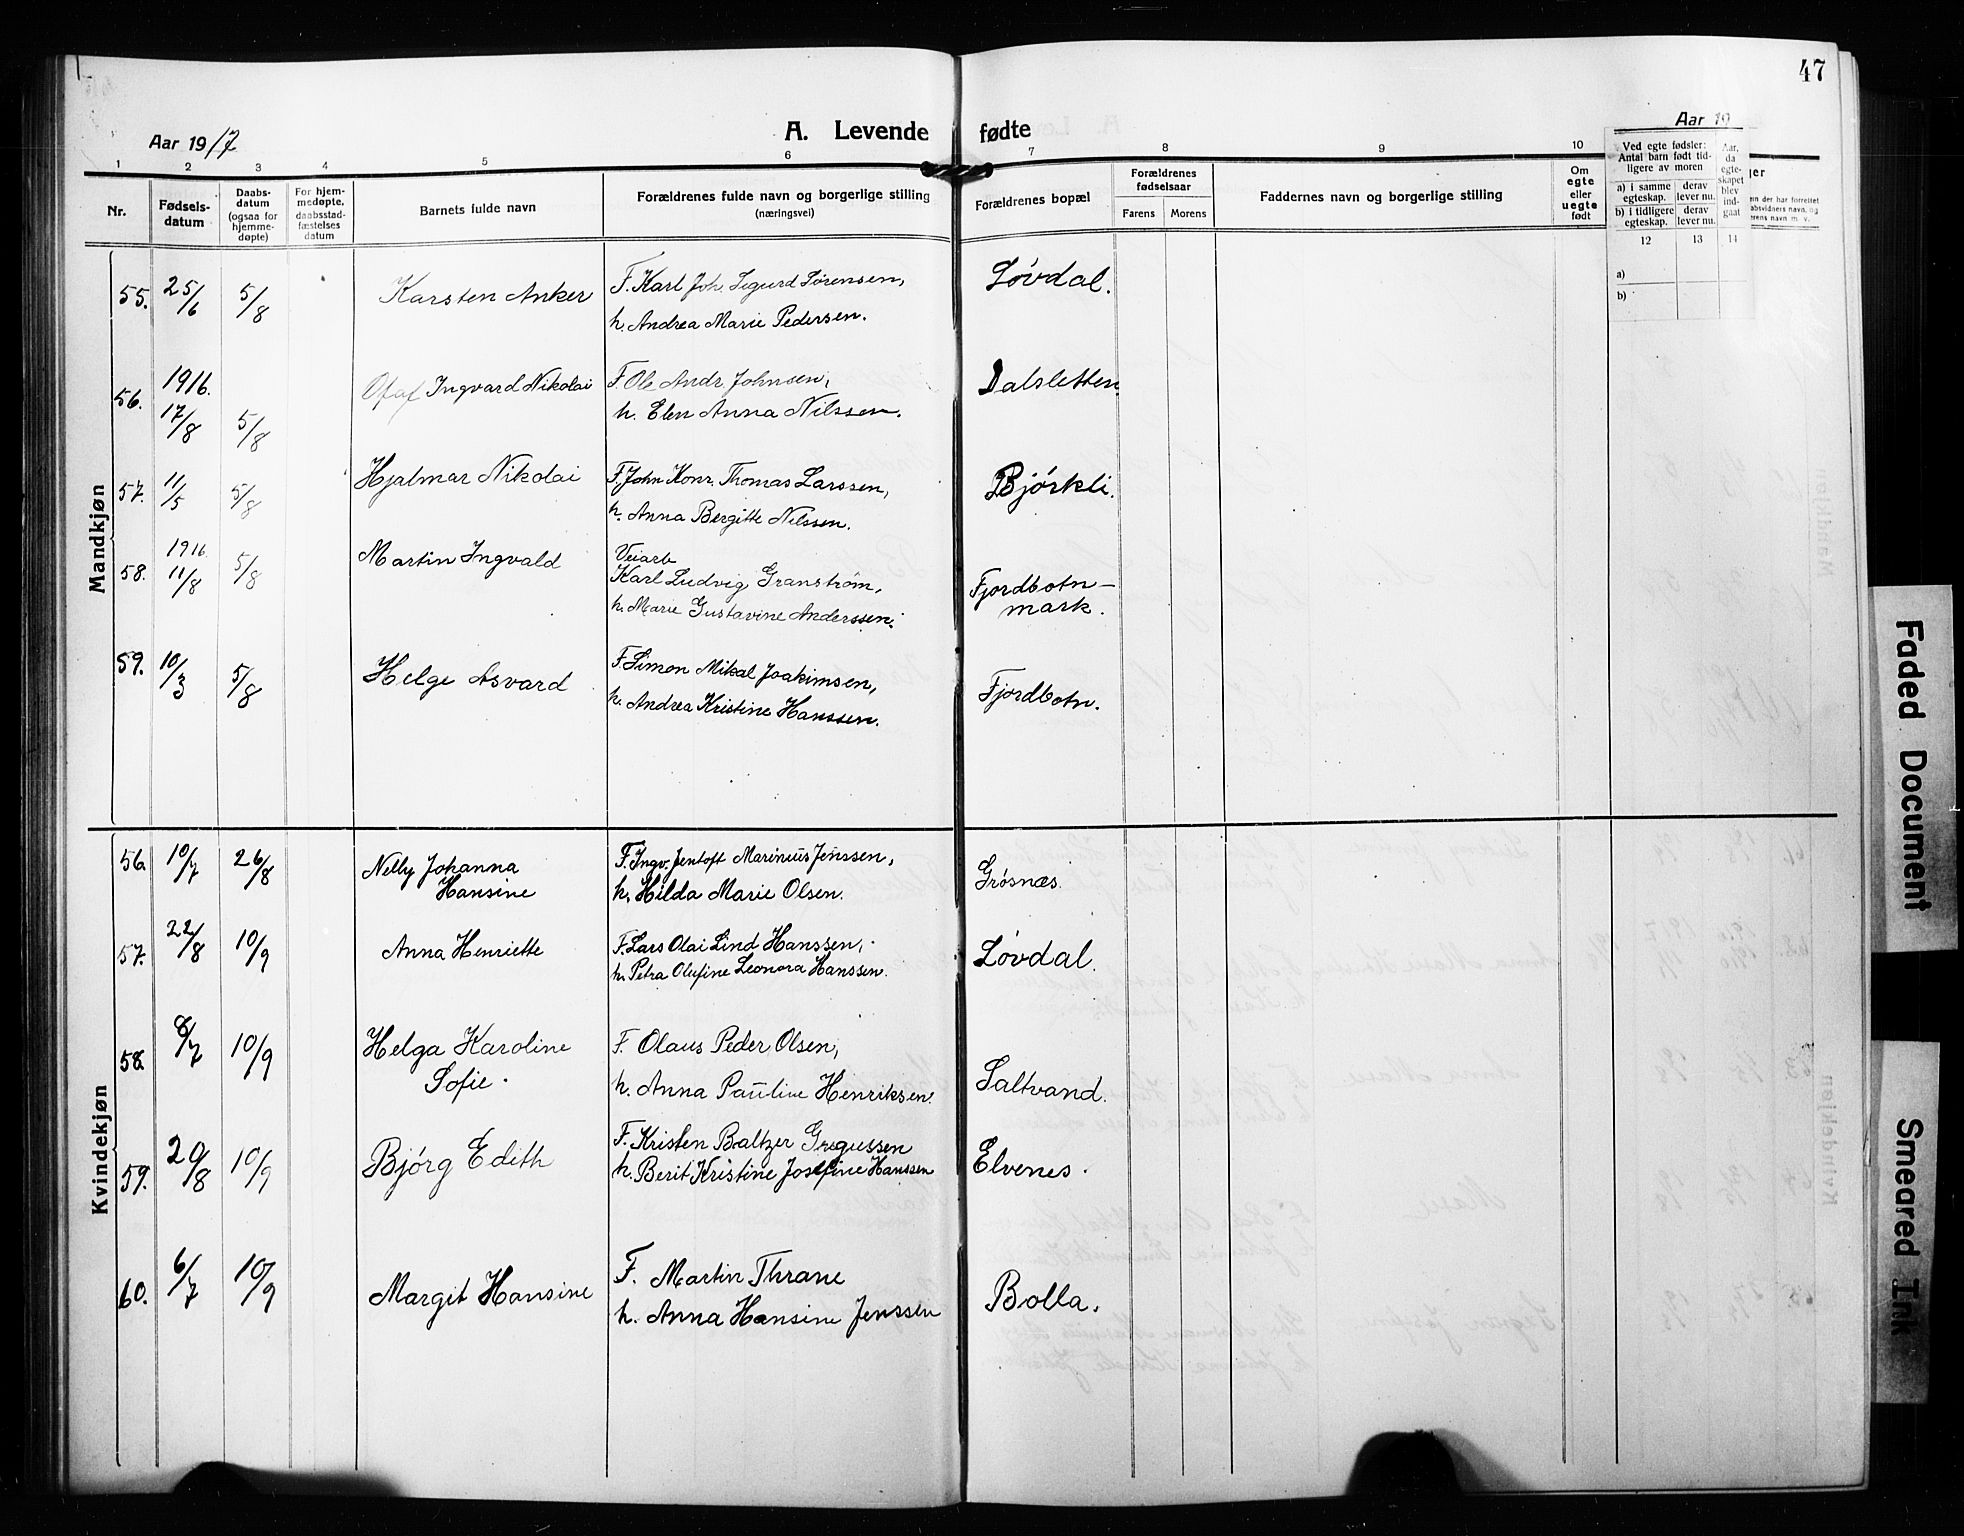 47
Aar 1917
A. Levende fødte
Aar 19
1 2 3 4 5 6 7 8 9 10
Nr.
Fødsels-
datum
Daabs-
datum
(ogsaa for
hjemme-
døpte)
For hjem-
medøpte,
daabsstad-
fæstelses
datum
Barnets fulde navn
Forældrenes fulde navn og borgerlige stilling
(næringsvei)
Forældrenes bopæl
Forældrenes
fødselsaar
Farens Morens
Faddernes navn og borgerlige stilling
Om
egte
eller
uegte
født
Ved egte fødsler:
Antal barn født tid-
ligere av moren
a) i samme
egteskap.
derav
lever nu.
b) i tidligere
egteskap.
derav
lever nu.
Aar,
da
egte-
skapet
blev
ind-
gaat
12 13 14
a)
b)
Mandkjøn
55. 25/6 5/8 Karsten Anker F. Karl Joh. Sigurd Sørensen, Løvdal.
h. Andrea Marie Pedersen.
56. 1916. 17/8 5/8 Olaf Ingvard Nikolai F. Ole Andr. Johnsen, Dalsletten.
h. Elen Anna Nilssen.
57. 11/5 5/8 Hjalmar Nikolai F. John Konr. Thomas Larssen, Bjørkli.
h. Anna Bergitte Nilssen.
58. 1916. 11/8 5/8 Martin Ingvald Veiarb
Karl Ludvig Granstrøm, Fjordbotn-
h. Marie Gustavine Anderssen. mark.
59. 10/3 5/8 Helge Asvard F. Simon Mikal Joakimsen, Fjordbotn.
h. Andrea Kristine Hanssen.
Kvindekjøn
56. 10/7 26/8 Nelly Johanna F. Ingv. Jentoft Marinius Jenssen, Grøsnæs.
Hansine h. Hilda Marie Olsen.
57. 22/8 10/9 Anna Henriette F. Lars Olai Lind Hanssen, Løvdal.
h. Petra Olufine Leonora Hanssen.
58. 8/7 10/9 Helga Karoline F. Olaus Peder Olsen, Saltvand.
Sofie. h. Anna Pauline Henriksen.
59. 20/8 10/9 Bjørg Edith F. Kristen Baltzer Gregussen Elvenes.
h. Berit Kristine Josefine Hanssen
60. 6/7 10/9 Margit Hansine F. Martin Thrane Bolla.
h. Anna Hansine Jenssen
Faded Document
Smeared Ink